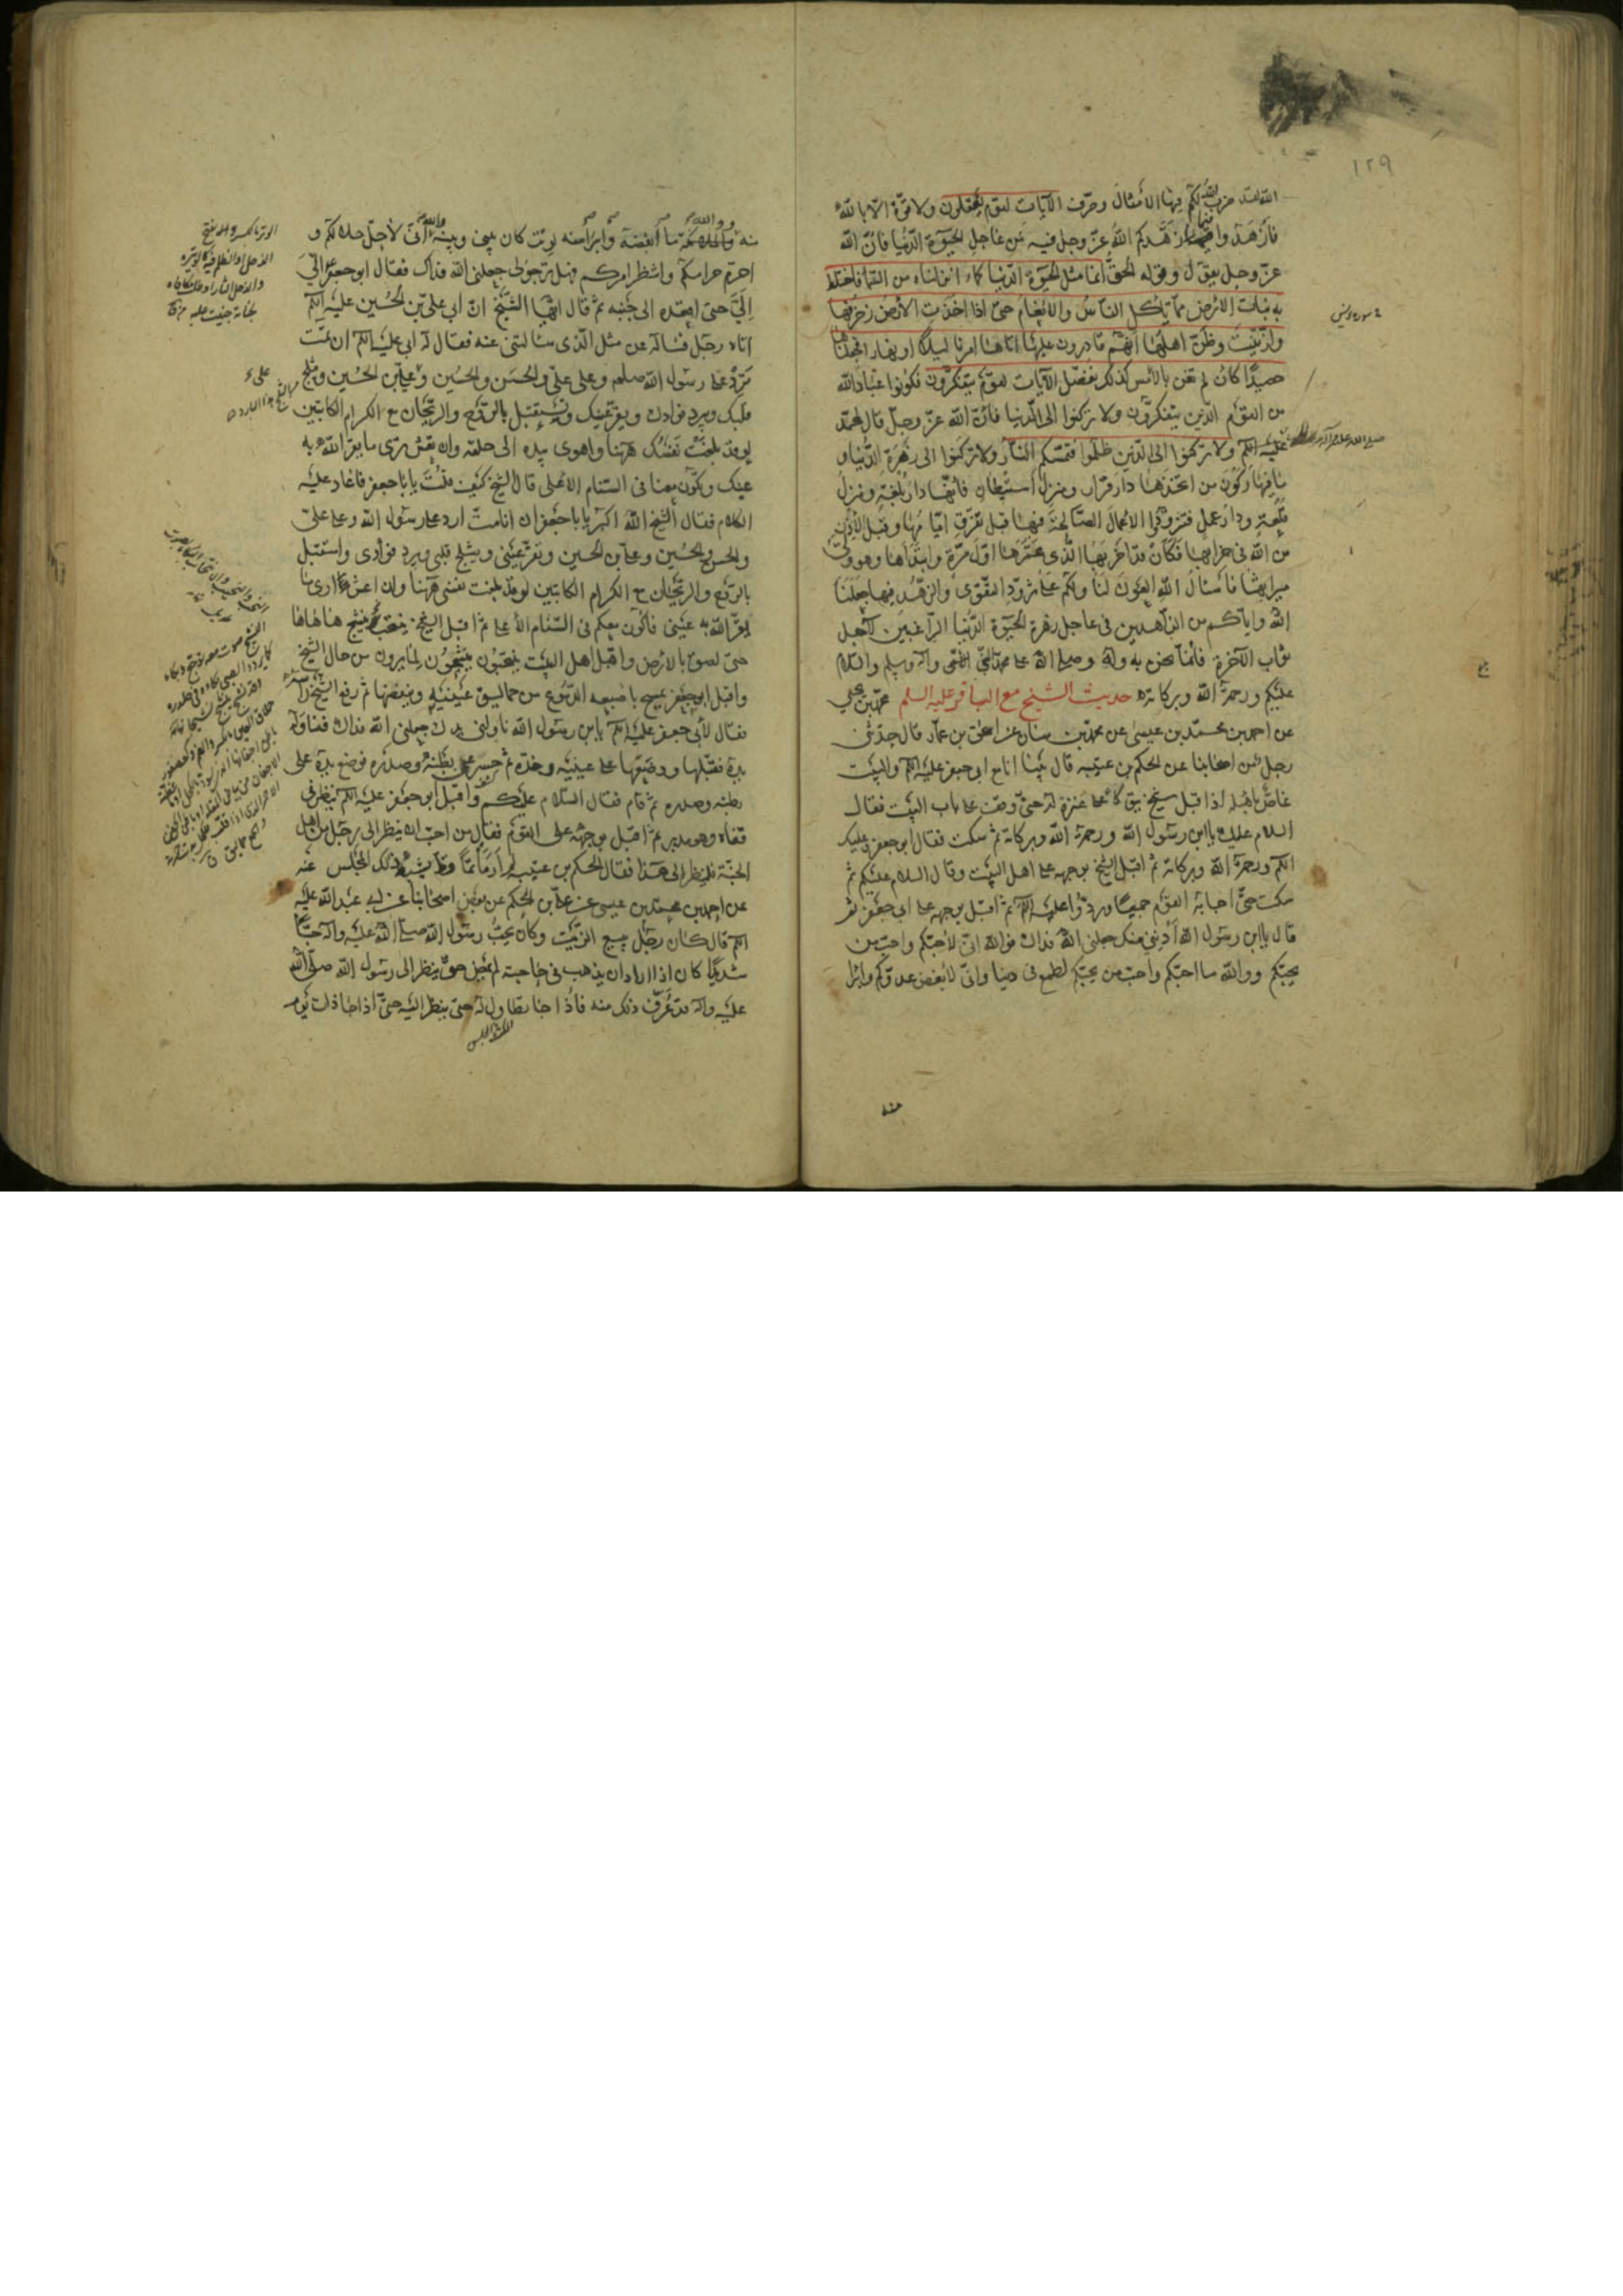 ١٢٩
الله لقد ضرب الله لكم فيها الأمثال وصرّف الآيات لقوم يعقلون ولا قوّة الّا بالله
فازهدوا فيما زهّدكم الله عزّ وجل فيه من عاجل الحيوة الدّنيا فانّ الله
عزّ وجل يقول وقوله الحقّ انّما مثل الحيوة الدّنيا كماء انزلناه من السّماء فاختلط
به نبات الارض ممّا ياكل النّاس والانعام حتّى اذا اخذت الارض زخرفها
وازّيّنت وظنّ اهلها انّهم قادرون عليها اتاها امرنا ليلا او نهارا فجعلناها
حصيدا كان لم تغن بالامس كذلك نفصّل الآيات لقوم يتفكّرون فكونوا عباد الله
من القوم الّذين يتفكّرون ولا تركنوا الى الدّنيا فانّ الله عزّ وجلّ قال لمحمّد
ولا تركنوا الى الّذين ظلموا فتمسّكم النّار ولا تركنوا الى زهرة الدّنيا و
ما فيها ركون من اتّخذها دار قرار ومنزل استيطان فانّها دار بلغة ومنزل
قلعة ودار عمل فتزوّدوا الاعمال الصّالحة فيها قبل تفرّق ايّامها وقبل الاذن
من الله في خرابها فكان قد اخربها الّذي عمّرها اوّل مرّة وابتداها وهو وليّ
ميراثها فاسأل الله العون لنا ولكم على تزوّد التّقوى والزّهد فيها جعلنا
الله وايّاكم من الزّاهدين في عاجل زهرة الحيوة الدّنيا الرّاغبين لآجل
ثواب الآخرة فانّما نحن به وله وصلّى الله على محمّد النّبيّ وآله وسلم والسّلام
عليكم ورحمة الله وبركاته حديث الشيخ مع الباقر عليه السلم محمّد بن يحيى
عن احمد بن محمّد بن عيسى عن محمّد بن سنان عن اسحق بن عمّار قال حدّثني
رجل من اصحابنا عن الحكم بن عتيبة قال بينا انا مع ابي جعفر عليه السلم والبيت
غاصّ باهله اذ اقبل شيخ يتوكّأ على عنزة له حتّى وقف على باب البيت فقال
السلام عليك يا ابن رسول الله ورحمة الله وبركاته ثم سكت فقال ابو جعفر وعليك
السلم ورحمة الله وبركاته ثم اقبل الشيخ بوجهه على اهل البيت وقال السلام عليكم ثم
سكت حتّى اجابه القوم جميعا وردّوا عليه السلم ثم اقبل بوجهه على ابي جعفر ثم
قال يا ابن رسول الله ادنني منك جعلني الله فداك فوالله انّي لاحبّكم واحبّ من
يحبّكم ووالله ما احبّكم واحبّ من يحبّكم لطمع في دنيا وانّي لابغض عدوّكم وابرا
منه
منه ووالله ما ابغضه وابرا منه لوتر كان بيني وبينه والله انّي لاحلّ حلالكم و
احرّم حرامكم وانتظر امركم فهل ترجو لي جعلني الله فداك فقال ابو جعفر الىّ
الىّ حتّى اقعده الى جنبه ثم قال ايّها الشّيخ انّ ابي عليّ بن الحسين عليه السلم
اتاه رجل فسأله عن مثل الّذي سألتني عنه فقال له ابي عليه السلم ان تمت
ترد على رسول الله صلعم وعلى عليّ والحسن والحسين وعليّ بن الحسين ويثلج
قلبك ويبرد فؤادك وتقرّ عينك وتستقبل بالرّوح والرّيحان مع الكرام الكاتبين
لو قد بلغت نفسك ههنا واهوى بيده الى حلقه وان تعش ترى ما يقرّ الله به
عينك وتكون معنا في السّنام الاعلى قال الشيخ كيف قلت يا با جعفر فاعاد عليه
الكلام فقال الشيخ الله اكبر يا با جعفر ان انا متّ ارد على رسول الله وعلى عليّ
والحسن والحسين وعليّ بن الحسين وتقرّ عيني ويثلج قلبي ويبرد فؤادي واستقبل
بالرّوح والرّيحان مع الكرام الكاتبين لو قد بلغت نفسي ههنا وان اعش ارى ما
يقرّ الله به عيني فاكون معكم في السّنام الاعلى ثم اقبل الشيخ ينتحب ينشج ها ها ها
حتّى لصق بالارض واقبل اهل البيت ينتحبون وينشجون لما يرون من حال الشيخ
واقبل ابو جعفر يمسح باصبعه الدّموع من حماليق عينيه وينفضها ثم رفع الشيخ راسه
فقال لابي جعفر عليه السلم يا بن رسول الله ناولني يدك جعلني الله فداك فناوله
يده فقبّلها ووضعها على عينيه وخدّه ثم حسر عن بطنه وصدره فوضع يده على
بطنه وصدره ثم قام فقال السّلام عليكم واقبل ابو جعفر عليه السلم ينظر في
قفاه وهو مدبر ثم اقبل بوجهه على القوم فقال من احبّ ان ينظر الى رجل من اهل
الجنّة فلينظر الى هذا فقال الحكم بن عتيبة لم ار مأتما قط يشبه ذلك المجلس عنه
عن احمد بن محمّد بن عيسى عن عليّ بن الحكم عن بعض اصحابنا عن ابي عبد الله عليه
السلم قال كان رجل يبيع الزّيت وكان يحبّ رسول الله صلّى الله عليه وآله حبّا
شديدا كان اذا اراد ان يذهب في حاجته لم يمض حتّى ينظر الى رسول الله صلّى الله
عليه وآله قد عرف ذلك منه فاذا جاء تطاول له حتّى ينظر اليه حتّى اذا كان ذات يوم